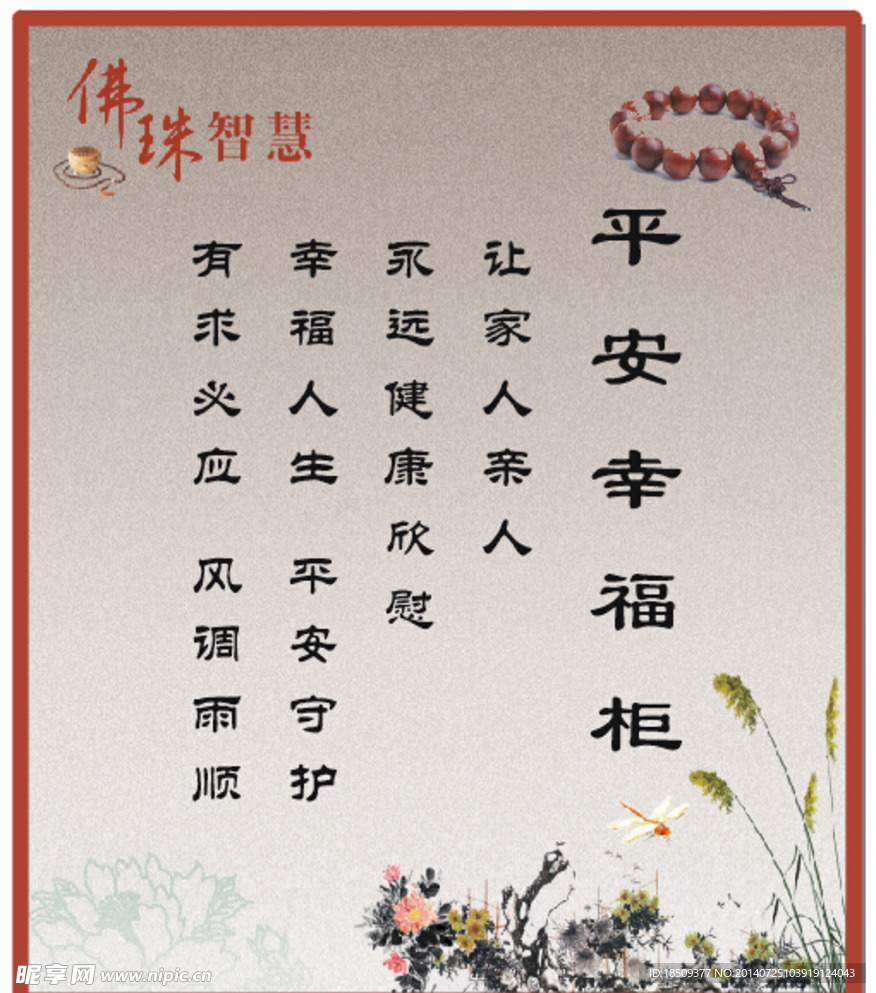 佛珠智慧
平安幸福柜
让家人亲人
永远健康欣慰
幸福人生 平安守护
有求必应 风调雨顺
昵享网 www.nipic.cn
ID:18509377 NO:20140725103919124043